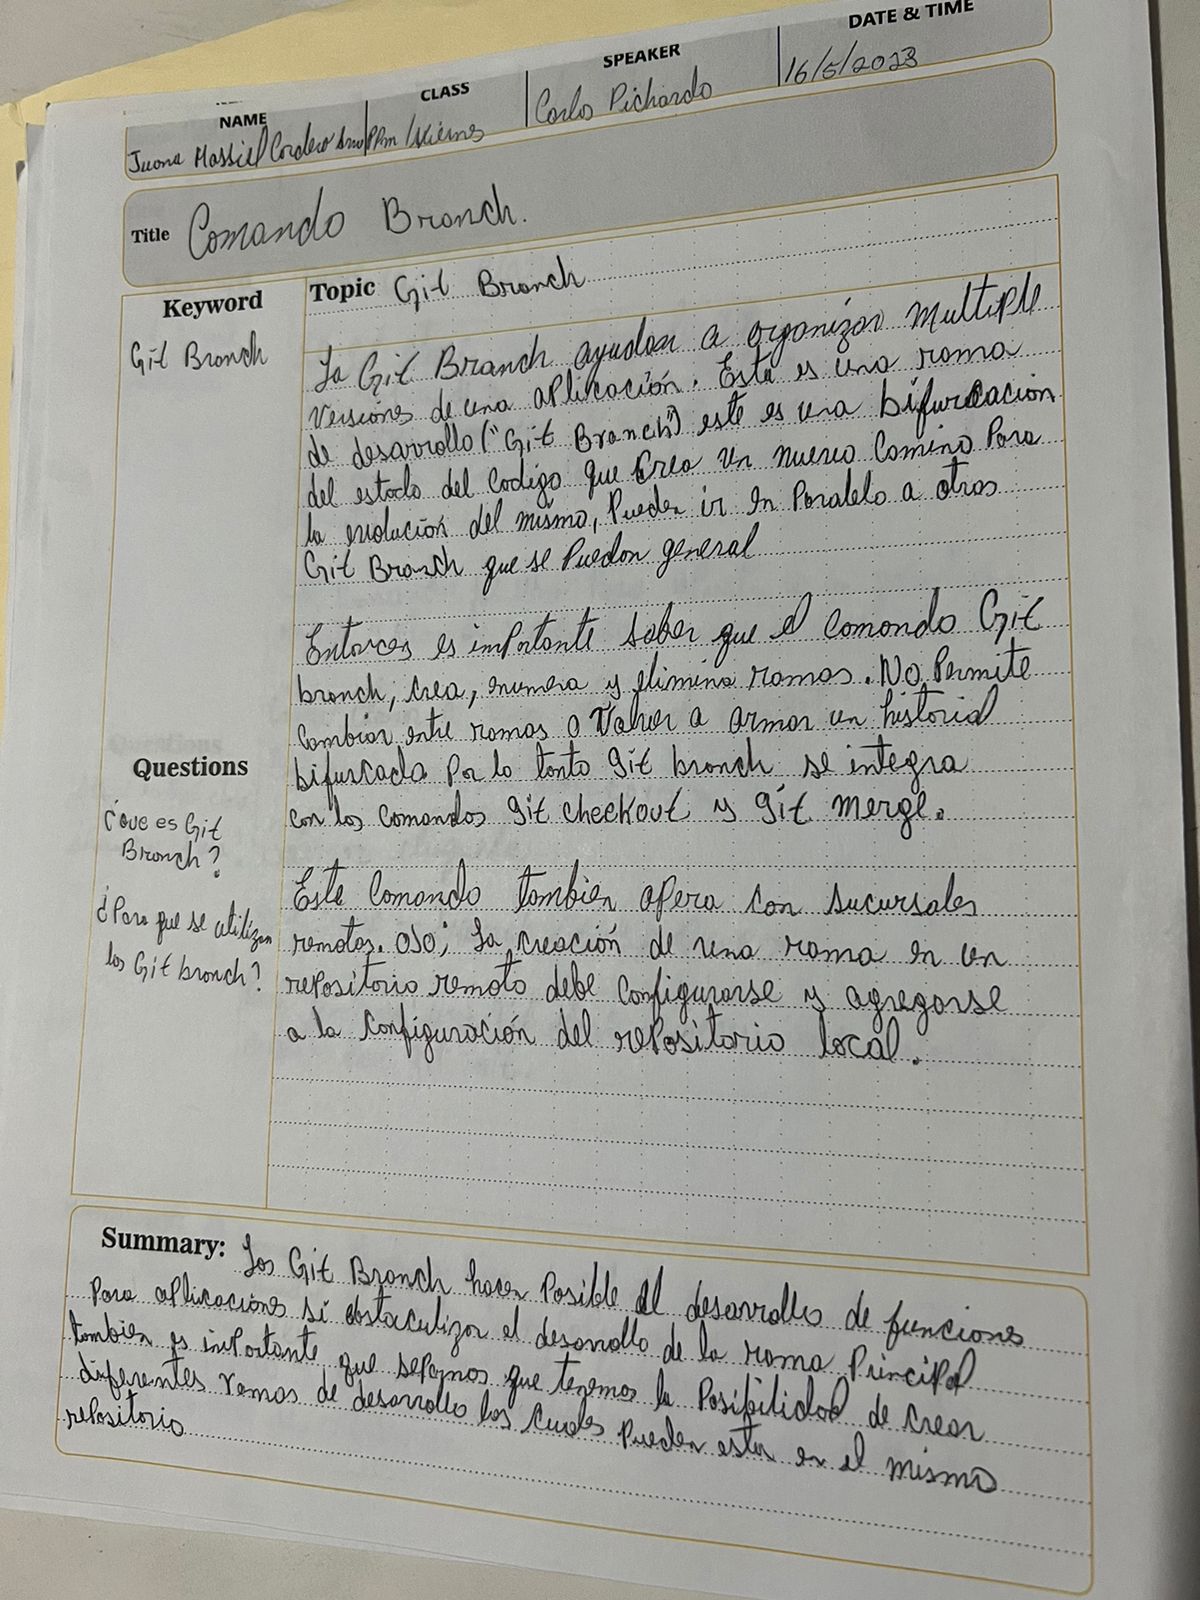 NAME CLASS SPEAKER DATE & TIME
Juana Massiel Cordero PPm/Viernes Carlo Pichardo 16/5/2023
Title Comando Branch.
Keyword
Git Branch
Topic Git Branch
La Git Branch ayudan a organizar Multiple
Versiones de una aplicación. Esta es una rama
de desarrollo ("Git Branch") este es una bifurcación
del estado del Codigo que Crea un nuevo Camino Para
la evolución del mismo, Pueden ir en Paralelo a otras
Git Branch que se Puedan general
Entonces es importante saber que el comando Git
branch, crea, enumera y elimina ramas. No Permite
Cambiar entre ramas o Volver a armar un historial
bifurcada Por lo tanto git branch se integra
con los comandos git checkout y git merge.
Este Comando tambien opera con sucursales
remotas. OJO; La creación de una rama en un
repositorio remoto debe configurarse y agregarse
a la configuración del repositorio local.
Questions
¿Que es Git
Branch?
¿Para que se utilizan
los Git branch?
Summary: Los Git Branch hacen Posible el desarrollo de funciones
Para aplicaciones si obstaculizar el desarrollo de la rama Principal
tambien es importante que sepamos que tenemos la Posibilidad de crear
diferentes ramas de desarrollo las cuales Pueden estar en el mismo
repositorio